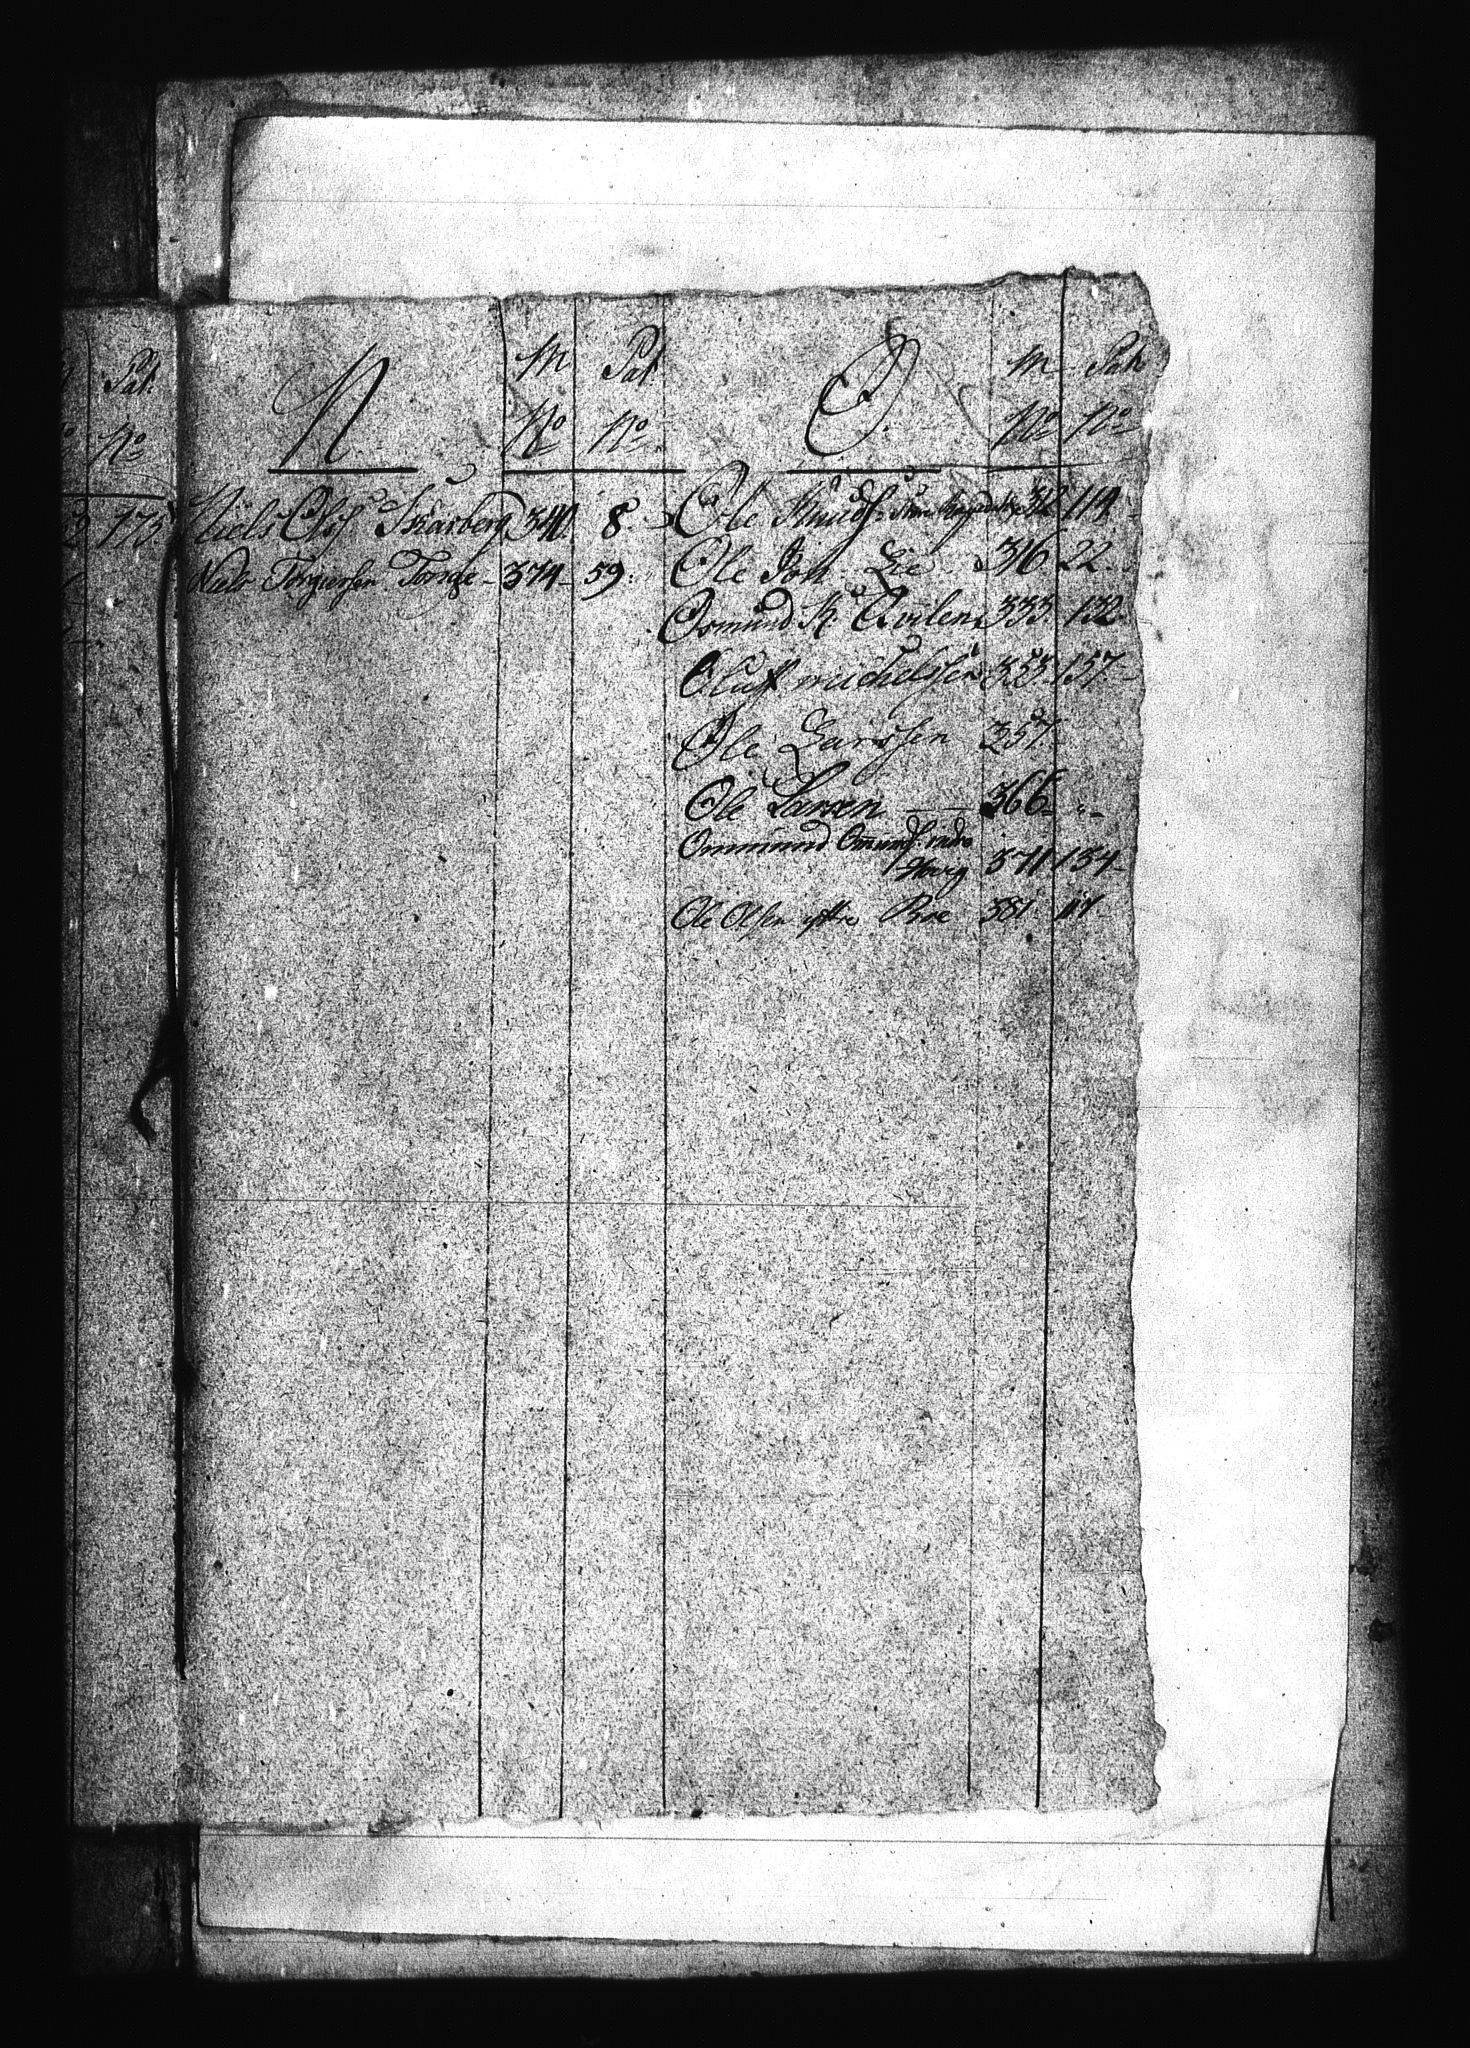 Pat:
No
175.
N.
M
No
Pat.
No
Niels Ols: Skarberg 340. 8.
Niels Torgiersen Torsge - 374 - 59.
O.
M
No
Pat.
No
Ole Knuds: 114
Ole Joh: Lie 316 22.
Osmund K: Qvilen 333. 132.
Oluff michelsen 353. 157-
Ole Larssen 357.
Ole Larsen — 366 - " -
Ommund Omunds: indre
Hovig 371 154-
Ole Olsen ystre Roe 381. 117.